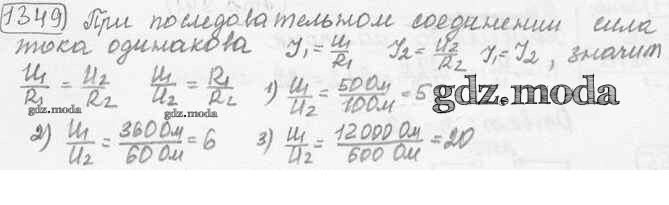 1349) При последовательном соединении сила
тока одинакова I₁ = U₁/R₁ I₂ = U₂/R₂ I₁ = I₂, значит
U₁/R₁ = U₂/R₂ U₁/U₂ = R₁/R₂ 1) U₁/U₂ = 50 Ом/10 Ом = 5
gdz.moda
gdz.moda
2) U₁/U₂ = 360 Ом/60 Ом = 6 3) U₁/U₂ = 12000 Ом/600 Ом = 20